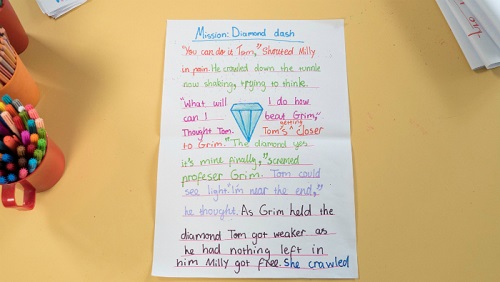 Mission: Diamond dash
"You can do it Tom," Shouted Milly
in pain. He crawled down the tunnle
now shaking, trying to thinke.
"What will I do how
can I beat Grim,"
Thought Tom. Tom's getting closer
to Grim. "The diamond yes
it's mine finally," screamed
profeser Grim. Tom could
see light "Im near the end,"
he thought. As Grim held the
diamond Tom got weaker as
he had nothing left in
him Milly got free. She crawled